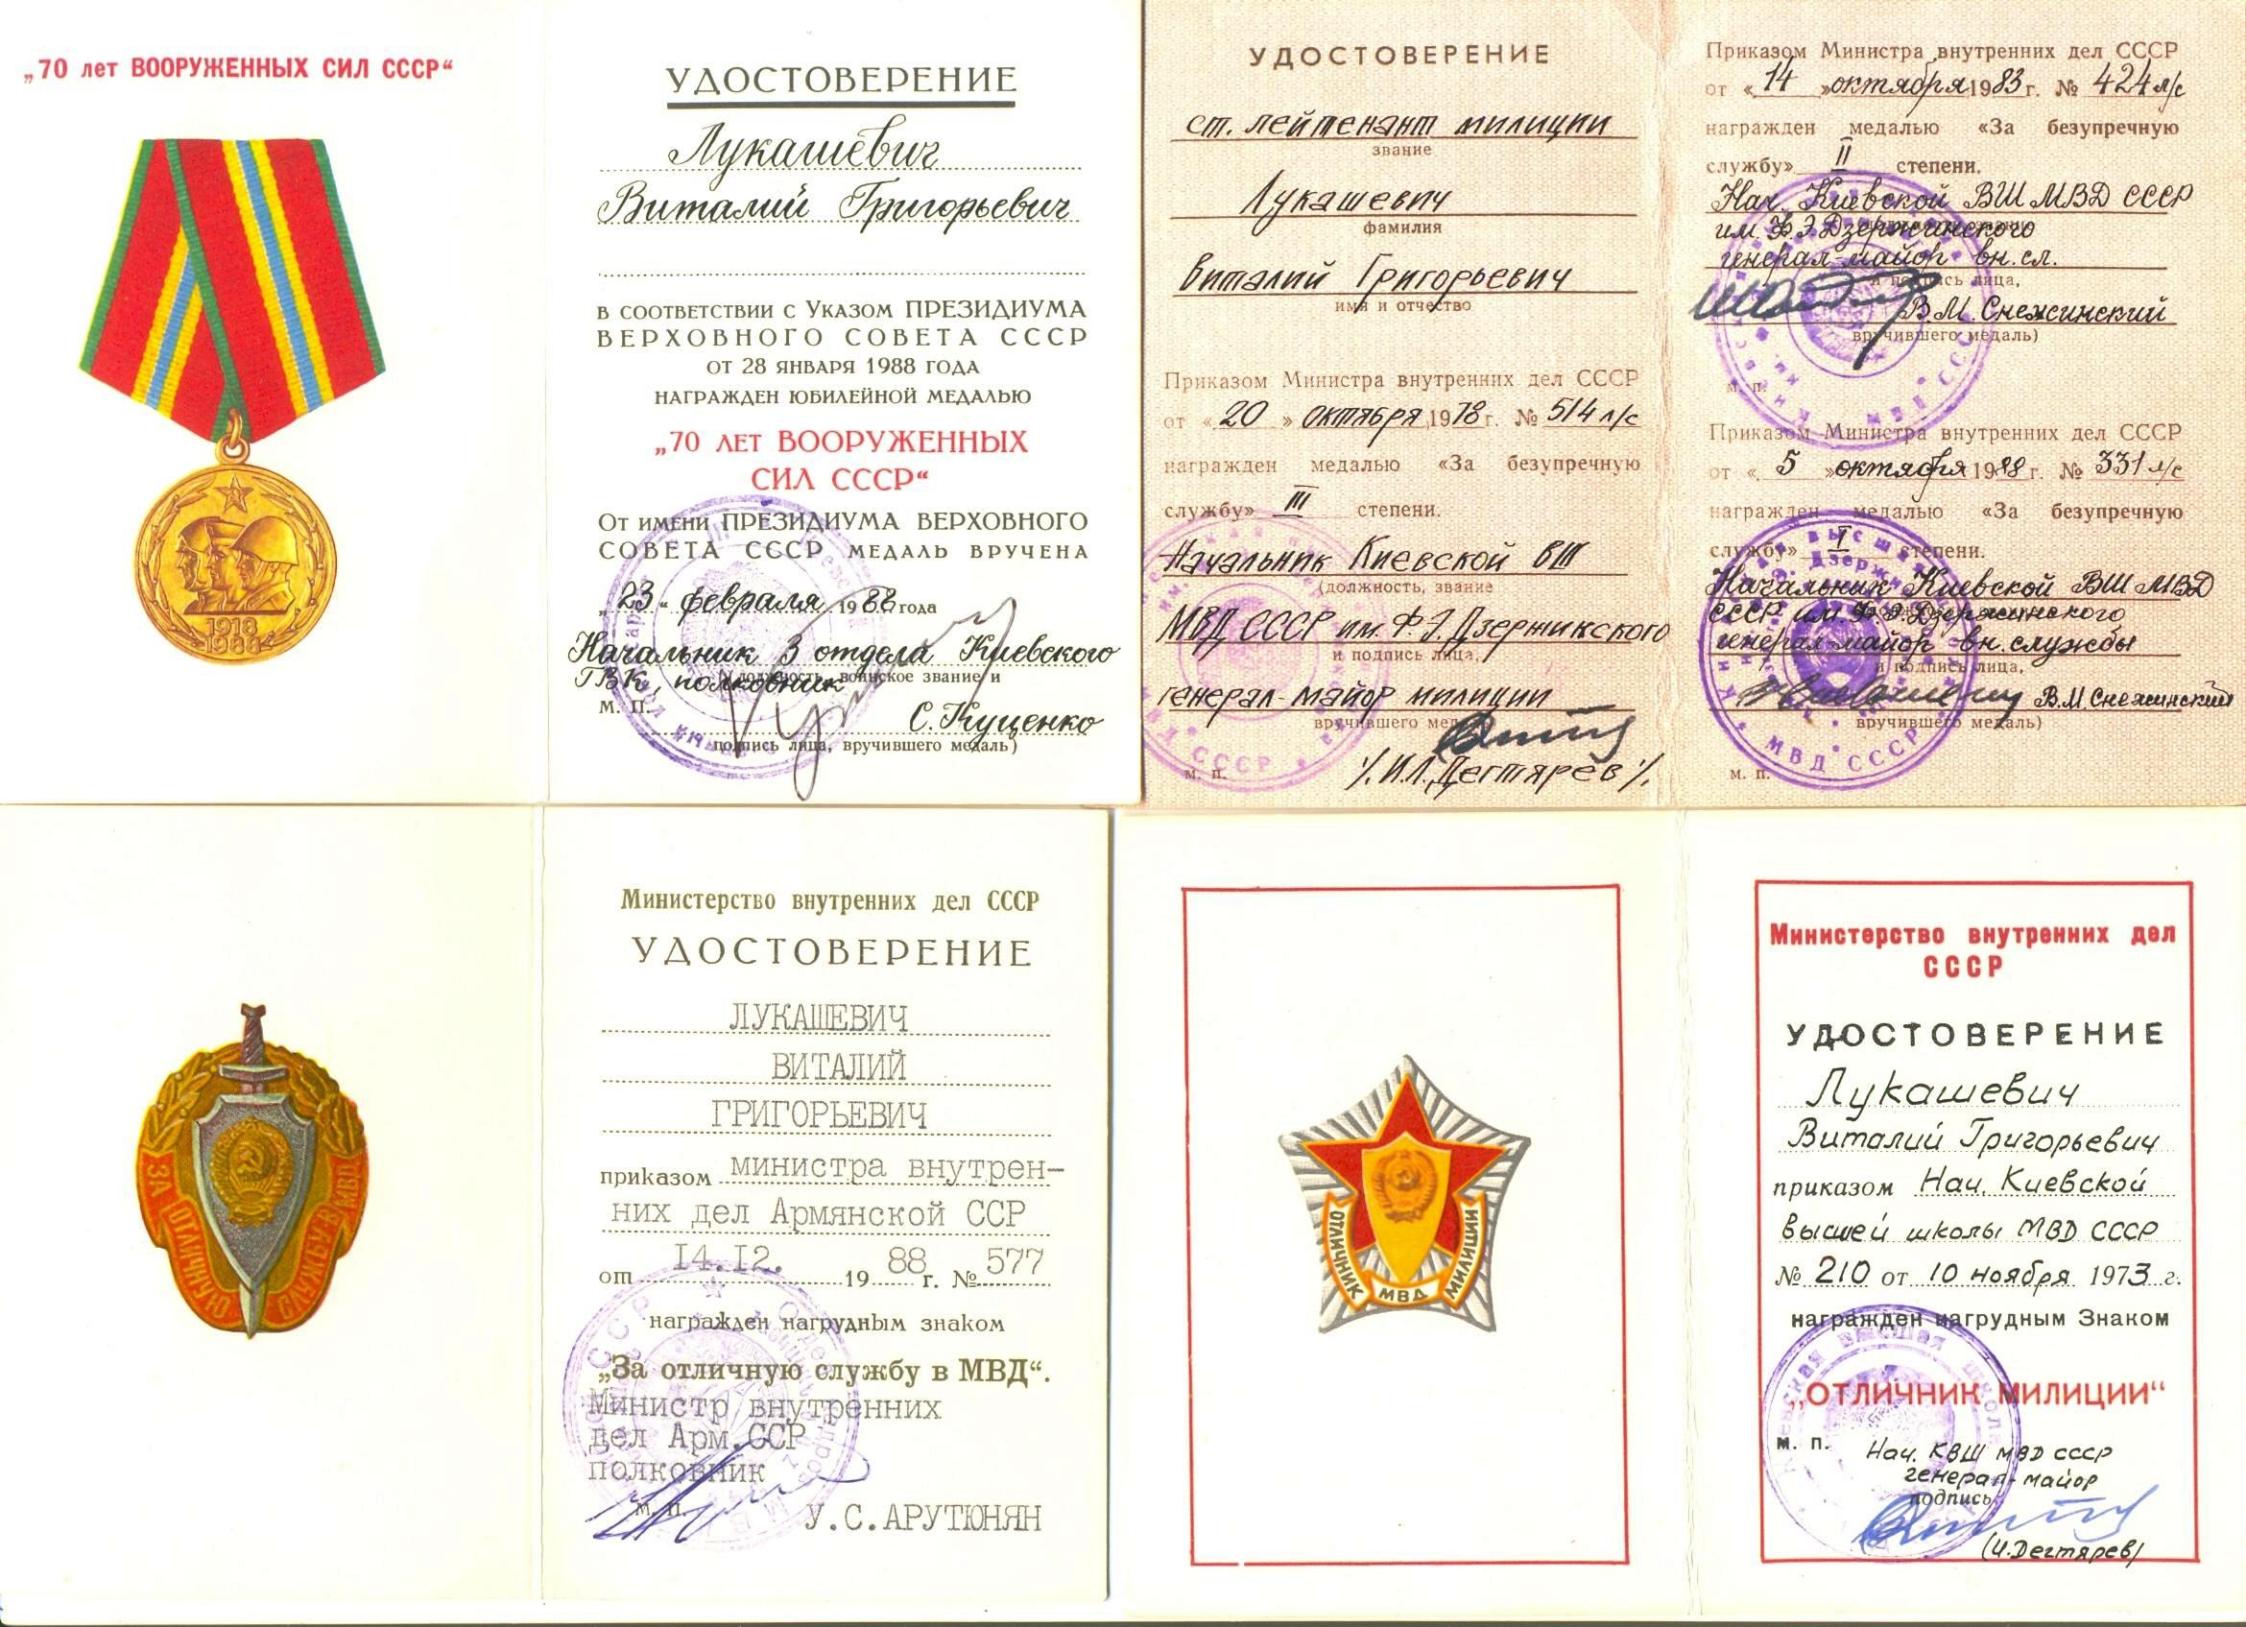 „70 лет ВООРУЖЕННЫХ СИЛ СССР“
1918
1988
УДОСТОВЕРЕНИЕ
Лукашевич
Виталий Григорьевич
в соответствии с Указом ПРЕЗИДИУМА
ВЕРХОВНОГО СОВЕТА СССР
от 28 января 1988 года
награжден юбилейной медалью
„70 лет ВООРУЖЕННЫХ
СИЛ СССР“
От имени ПРЕЗИДИУМА ВЕРХОВНОГО
СОВЕТА СССР медаль вручена
„23“ февраля 1988 года
Начальник 3 отдела Киевского
ГВК, полковник
(должность, воинское звание и
м. п.
С. Куценко
подпись лица, вручившего медаль)
УДОСТОВЕРЕНИЕ
ст. лейтенант милиции
звание
Лукашевич
фамилия
Виталий Григорьевич
имя и отчество
Приказом Министра внутренних дел СССР
от «20» октября 1978 г. № 514 л/с
награжден медалью «За безупречную
службу» III степени.
Начальник Киевской ВШ
(должность, звание
МВД СССР им. Ф.Э. Дзержинского
и подпись лица,
генерал-майор милиции
вручившего медаль)
/И.Л. Дегтярев/.
м. п.
Приказом Министра внутренних дел СССР
от «14» октября 1983 г. № 424 л/с
награжден медалью «За безупречную
службу» II степени.
Нач. Киевской ВШ МВД СССР
им. Ф.Э. Дзержинского
генерал-майор вн. сл.
и подпись лица,
В.М. Снежинский
вручившего медаль)
м. п.
Приказом Министра внутренних дел СССР
от «5» октября 1988 г. № 331 л/с
награжден медалью «За безупречную
службу» I степени.
Начальник Киевской ВШ МВД
СССР им. Ф.Э. Дзержинского
генерал-майор вн. службы
и подпись лица,
В.М. Снежинский
вручившего медаль)
м. п.
ЗА ОТЛИЧНУЮ СЛУЖБУ В МВД
Министерство внутренних дел СССР
УДОСТОВЕРЕНИЕ
ЛУКАШЕВИЧ
ВИТАЛИЙ
ГРИГОРЬЕВИЧ
приказом министра внутрен-
них дел Армянской ССР
от 14.12. 19 88 г. № 577
награжден нагрудным знаком
„За отличную службу в МВД“.
Министр внутренних
дел Арм.ССР
полковник
м. п.
У.С.АРУТЮНЯН
ОТЛИЧНИК МВД МИЛИЦИИ
Министерство внутренних дел
СССР
УДОСТОВЕРЕНИЕ
Лукашевич
Виталий Григорьевич
приказом Нач. Киевской
высшей школы МВД СССР
№ 210 от 10 ноября 1973 г.
награжден нагрудным Знаком
„ОТЛИЧНИК МИЛИЦИИ“
м. п.
Нач. КВШ МВД СССР
генерал-майор
подпись
(И. Дегтярев)